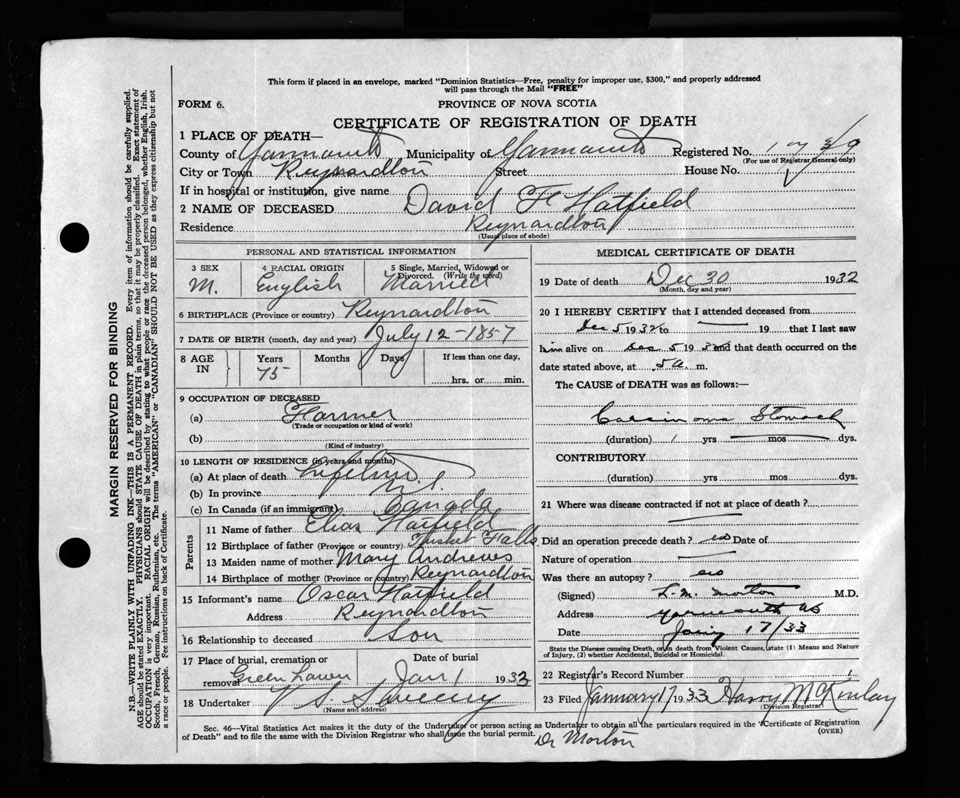 This form if placed in an envelope, marked "Dominion Statistics—Free, penalty for improper use, $300," and properly addressed
will pass through the Mail "FREE"
FORM 6.
PROVINCE OF NOVA SCOTIA
CERTIFICATE OF REGISTRATION OF DEATH
1 PLACE OF DEATH—
County of Yarmouth Municipality of Yarmouth Registered No.
(For use of Registrar General only)
City or Town Reynardton Street House No.
If in hospital or institution, give name
2 NAME OF DECEASED David F Hatfield
Residence Reynardton
(Usual place of abode)
PERSONAL AND STATISTICAL INFORMATION
3 SEX 4 RACIAL ORIGIN 5 Single, Married, Widowed or
Divorced. (Write the word)
M. English Married
6 BIRTHPLACE (Province or country) Reynardton
7 DATE OF BIRTH (month, day and year) July 12-1857
8 AGE IN Years Months Days If less than one day,
75 hrs. or min.
9 OCCUPATION OF DECEASED
(a) Farmer
(Trade or occupation or kind of work)
(b)
(Kind of industry)
10 LENGTH OF RESIDENCE (in years and months)
(a) At place of death Lifetime
(b) In province N.S.
(c) In Canada (if an immigrant) Canada
Parents
11 Name of father Elias Hatfield
12 Birthplace of father (Province or country) Tusket Falls
13 Maiden name of mother Mary Andrews
14 Birthplace of mother (Province or country) Reynardton
15 Informant's name Oscar Hatfield
Address Reynardton
16 Relationship to deceased Son
17 Place of burial, cremation or Date of burial
removal Green Lawn Jan 1 1933
18 Undertaker V S Sweeny
(Name and address)
MEDICAL CERTIFICATE OF DEATH
19 Date of death Dec 30 1932
(Month, day and year)
20 I HEREBY CERTIFY that I attended deceased from
Dec 5 1932 to 19 that I last saw
him alive on Dec 5 19 and that death occurred on the
date stated above, at 5 a. m.
The CAUSE OF DEATH was as follows:—
Carcinoma Stomach
(duration) 1 yrs mos dys.
CONTRIBUTORY
(duration) yrs. mos. dys.
21 Where was disease contracted if not at place of death?
Did an operation precede death? no Date of
Nature of operation
Was there an autopsy? no
(Signed) L.M. Morton M.D.
Address Yarmouth NS
Date Jany 17/33
State the Disease causing Death, or, in death from Violent Causes, state (1) Means and Nature
of Injury, (2) whether Accidental, Suicidal or Homicidal.
22 Registrar's Record Number
23 Filed January 17 1933 Harry McKinlay
(Division Registrar)
Sec. 46—Vital Statistics Act makes it the duty of the Undertaker or person acting as Undertaker to obtain all the particulars required in the "Certificate of Registration
of Death" and to file the same with the Division Registrar who shall issue the burial permit.
(OVER)
Dr Morton
MARGIN RESERVED FOR BINDING
N.B.—WRITE PLAINLY WITH UNFADING INK—THIS IS A PERMANENT RECORD. Every item of information should be carefully supplied.
AGE should be stated EXACTLY. PHYSICIANS should STATE CAUSE OF DEATH in plain terms, so that it may be properly classified. Exact statement of
OCCUPATION is very important. RACIAL ORIGIN will be described by stating to what people or race the deceased person belonged, whether English, Irish,
Scotch, French, German, Russian, Ruthenian, etc. The terms "AMERICAN" or "CANADIAN" SHOULD NOT BE USED as they express citizenship but not
a race or people. Fee instructions on back of Certificate.